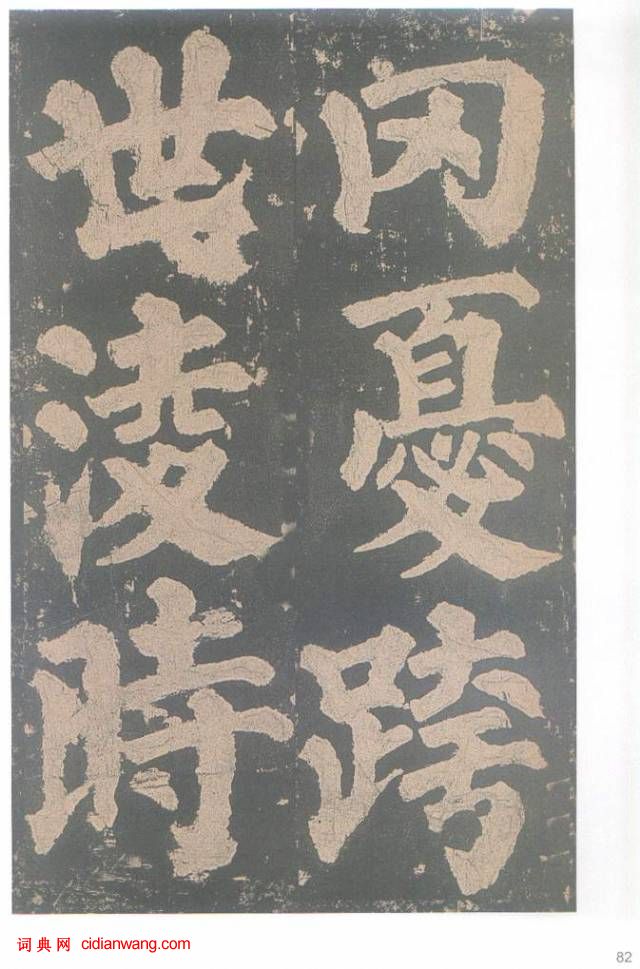 罔憂跨
世淩時
词典网 cidianwang.com
82